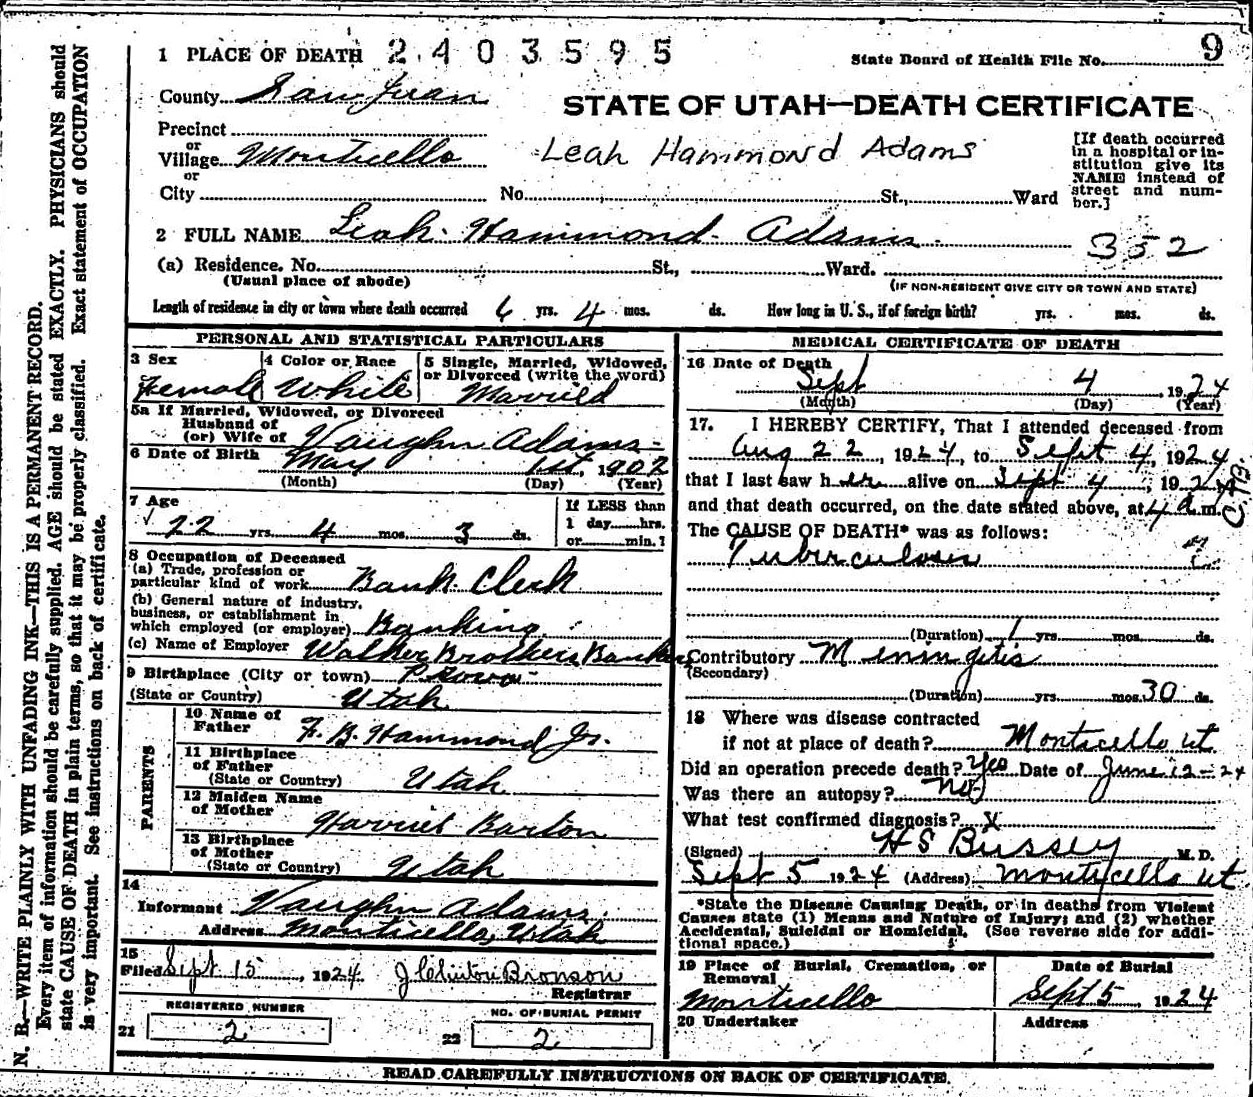 1 PLACE OF DEATH 2403595
State Board of Health File No. 9
County San Juan
STATE OF UTAH—DEATH CERTIFICATE
Precinct
or
Village Monticello
or
City
Leah Hammond Adams
No. St., Ward
[If death occurred
in a hospital or in-
stitution give its
NAME instead of
street and num-
ber.]
2 FULL NAME Leah Hammond Adams
352
(a) Residence. No. St., Ward.
(Usual place of abode)
(IF NON-RESIDENT GIVE CITY OR TOWN AND STATE)
Length of residence in city or town where death occurred 6 yrs. 4 mos. ds. How long in U. S., if of foreign birth? yrs. mos. ds.
PERSONAL AND STATISTICAL PARTICULARS
3 Sex
Female
4 Color or Race
White
5 Single, Married, Widowed,
or Divorced (write the word)
Married
5a If Married, Widowed, or Divorced
Husband of
(or) Wife of Vaughn Adams
6 Date of Birth May 1st, 1902
(Month) (Day) (Year)
7 Age
22 yrs. 4 mos. 3 ds.
If LESS than
1 day......hrs.
or......min.?
8 Occupation of Deceased
(a) Trade, profession or
particular kind of work Bank Clerk
(b) General nature of industry,
business, or establishment in
which employed (or employer) Banking
(c) Name of Employer Walker Brothers Bankers
9 Birthplace (City or town) Provo
(State or Country) Utah
PARENTS
10 Name of
Father F. B. Hammond Jr.
11 Birthplace
of Father
(State or Country) Utah
12 Maiden Name
of Mother Harriet Barton
13 Birthplace
of Mother
(State or Country) Utah
14
Informant Vaughn Adams
Address Monticello, Utah
15
Filed Sept 15, 1924. J Clinton Bronson
Registrar
REGISTERED NUMBER
21 2
NO. OF BURIAL PERMIT
22 2
MEDICAL CERTIFICATE OF DEATH
16 Date of Death
Sept 4, 1924
(Month) (Day) (Year)
17. I HEREBY CERTIFY, That I attended deceased from
Aug 22, 1924, to Sept 4, 1924
that I last saw her alive on Sept 4, 1924
and that death occurred, on the date stated above, at 4 a m.
The CAUSE OF DEATH* was as follows:
Tuberculosis
(Duration) 1 yrs. mos. ds.
Contributory Meningitis
(Secondary)
(Duration) yrs. mos. 30 ds.
18 Where was disease contracted
if not at place of death? Monticello ut
Did an operation precede death? Yes Date of June 12-24
Was there an autopsy? No
What test confirmed diagnosis? X
(Signed) H S Bussey M. D.
Sept 5 1924 (Address) Monticello ut
*State the Disease Causing Death, or in deaths from Violent
Causes state (1) Means and Nature of Injury; and (2) whether
Accidental, Suicidal or Homicidal. (See reverse side for addi-
tional space.)
19 Place of Burial, Cremation, or
Removal
Monticello
Date of Burial
Sept 5 1924
20 Undertaker
Address
READ CAREFULLY INSTRUCTIONS ON BACK OF CERTIFICATE.
N. B.—WRITE PLAINLY WITH UNFADING INK—THIS IS A PERMANENT RECORD.
Every item of information should be carefully supplied. AGE should be stated EXACTLY. PHYSICIANS should
state CAUSE OF DEATH in plain terms, so that it may be properly classified. Exact statement of OCCUPATION
is very important. See instructions on back of certificate.